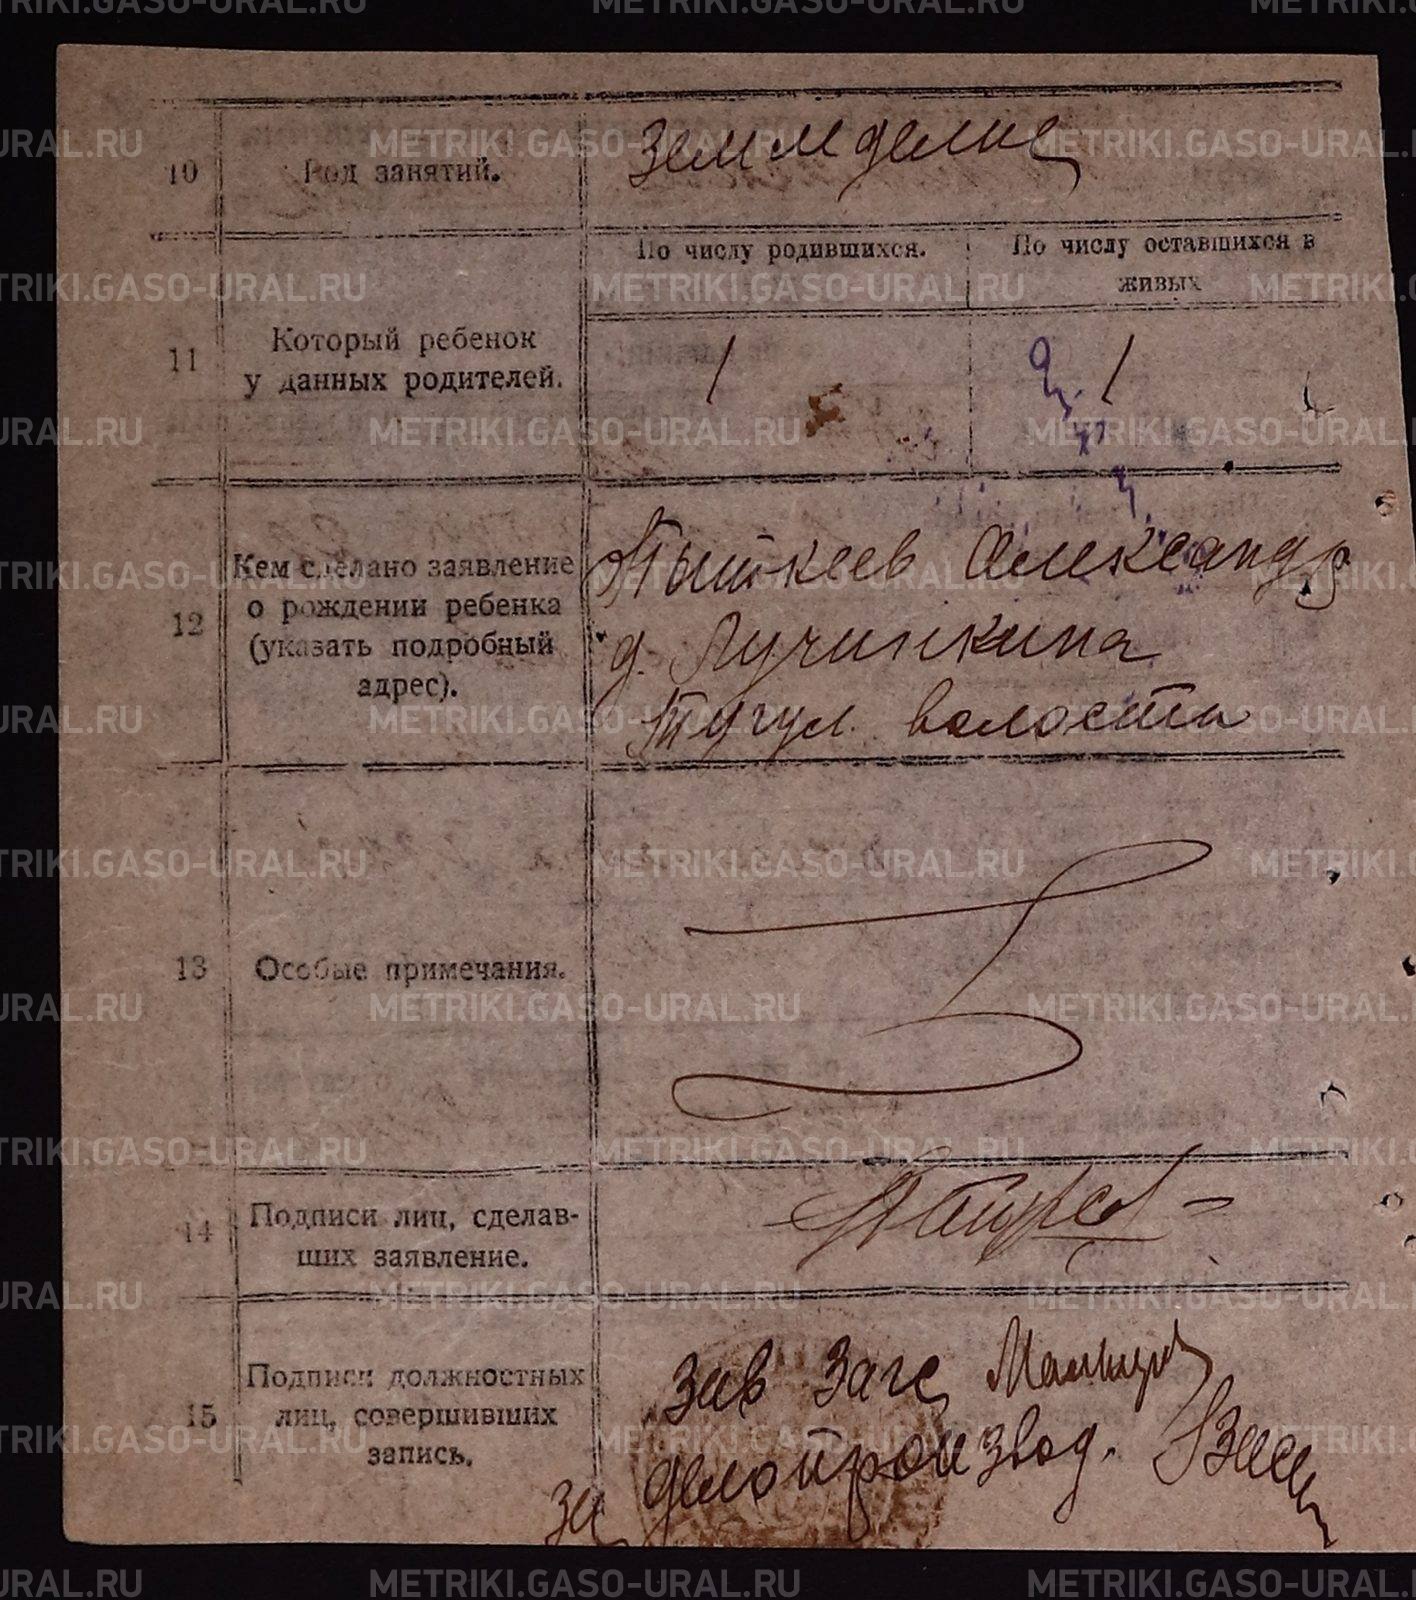 10
Род занятий.
Земледелие
11
Который ребенок
у данных родителей.
По числу родившихся.
По числу оставшихся в
живых
1
1
12
Кем сделано заявление
о рождении ребенка
(указать подробный
адрес).
Пыткеев Александр
д. Лучинкина
Тугул. волости
13
Особые примечания.
14
Подписи лиц, сделав-
ших заявление.
15
Подписи должностных
лиц, совершивших
запись.
Зав Загс
за делопроизвод.
METRIKI.GASO-URAL.RU